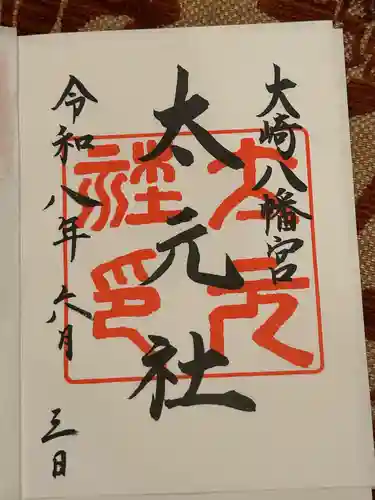 大崎八幡宮
太元社
令和八年六月三日
太元社印